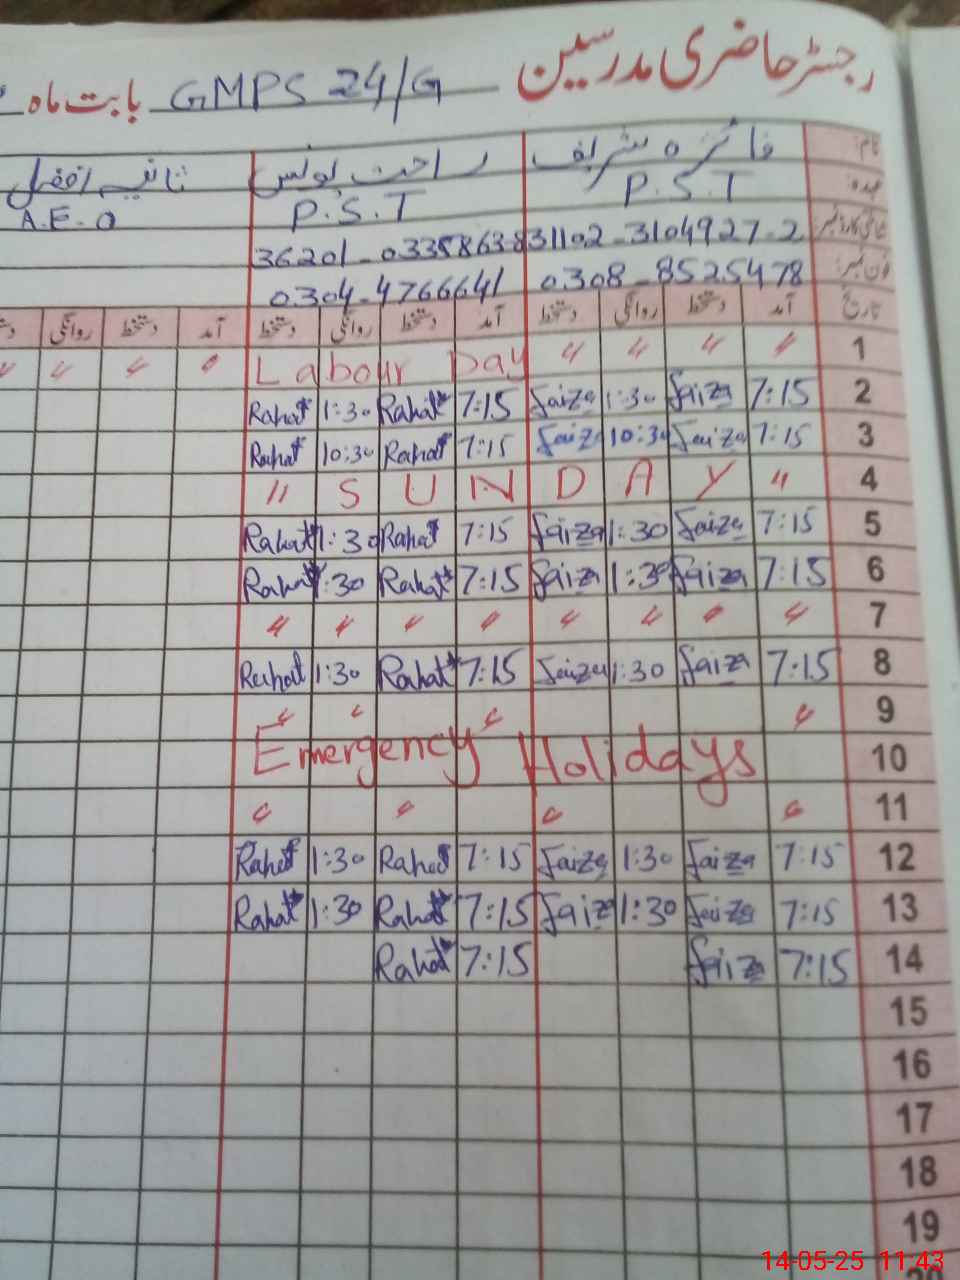 رجسٹر حاضری مدرسین GMPS 24/G بابت ماہ
نام: فائزہ شریف راحت یونس تانیہ افضل
عہدہ: P.S.T P.S.T A.E.O
31102-3104927-2 36201-0335863-8
فون نمبر: 0308-8525478 0304-4766641
تاریخ آمد دستخط روانگی دستخط آمد دستخط روانگی دستخط آمد دستخط روانگی
1 〃 〃 〃 〃 Labour Day 〃 〃 〃 〃
2 7:15 Faiza 1:30 Faiza 7:15 Rahat 1:30 Rahat
3 7:15 Faiza 10:30 Faiza 7:15 Rahat 10:30 Rahat
4 〃 S U N D A Y 〃
5 7:15 Faiza 1:30 Faiza 7:15 Rahat 1:30 Rahat
6 7:15 Faiza 1:30 Faiza 7:15 Rahat 1:30 Rahat
7 〃 〃 〃 〃 〃 〃 〃 〃
8 7:15 Faiza 1:30 Faiza 7:15 Rahat 1:30 Rahat
9 〃 〃 〃 〃
10 Emergency Holidays
11 〃 〃 〃 〃
12 7:15 Faiza 1:30 Faiza 7:15 Rahat 1:30 Rahat
13 7:15 Faiza 1:30 Faiza 7:15 Rahat 1:30 Rahat
14 7:15 Faiza 7:15 Rahat
15
16
17
18
19
14-05-25 11:43